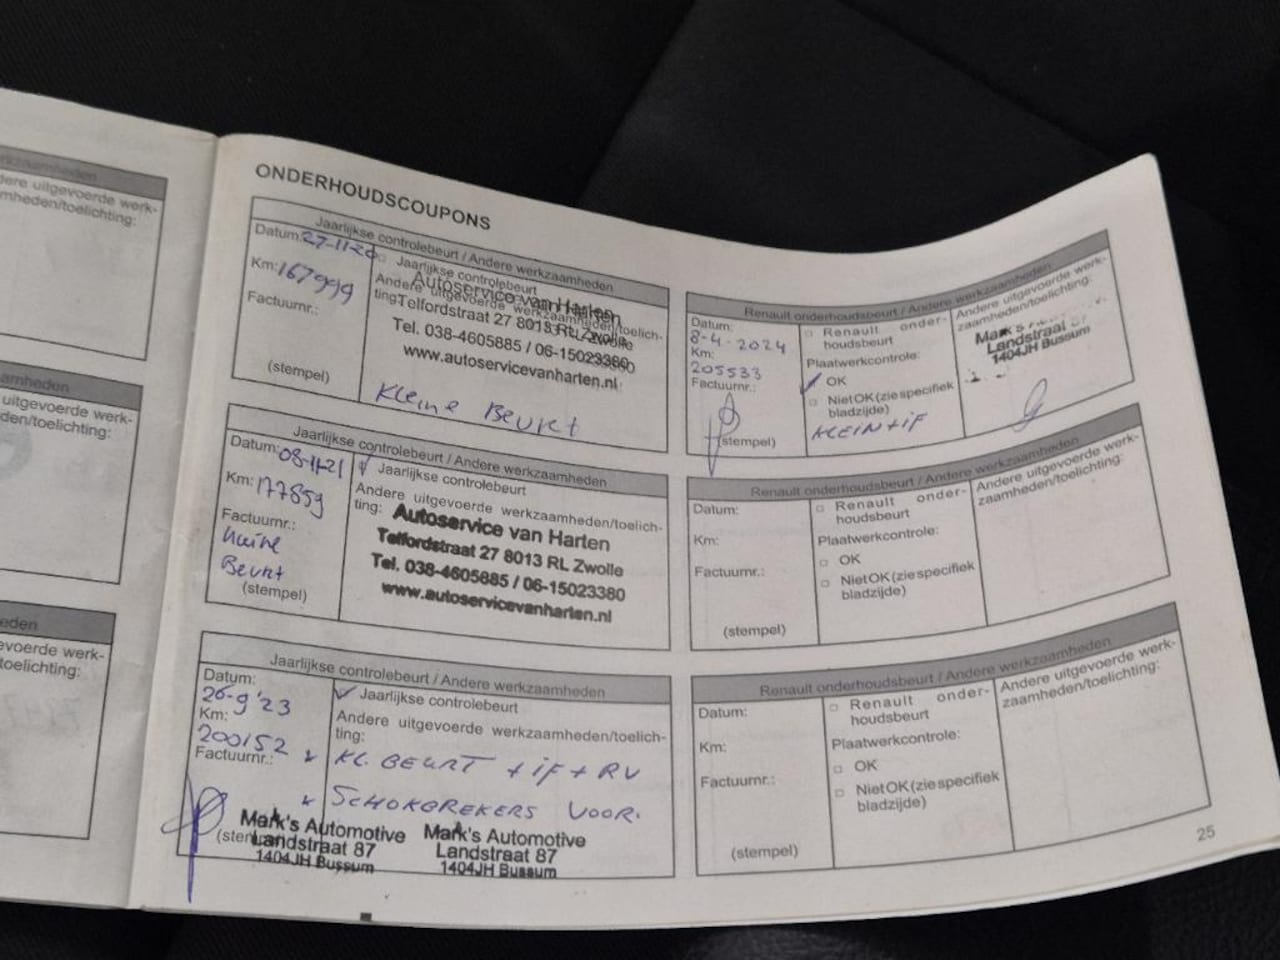 rkzaamheden
dere uitgevoerde werk-
mheden/toelichting:
aamheden
uitgevoerde werk-
den/toelichting:
eden
evoerde werk-
toelichting:
ONDERHOUDSCOUPONS
Jaarlijkse controlebeurt / Andere werkzaamheden
Datum: 27-11-20
Jaarlijkse controlebeurt
Km: 167999
Andere uitgevoerde werkzaamheden/toelich-
ting:
Factuurnr.:
Autoservice van Harten
Telfordstraat 27 8013 RL Zwolle
Tel. 038-4605885 / 06-15023380
www.autoservicevanharten.nl
(stempel)
Kleine Beurt
Jaarlijkse controlebeurt / Andere werkzaamheden
Datum: 08-11-21
Jaarlijkse controlebeurt
Km: 177859
Andere uitgevoerde werkzaamheden/toelich-
ting:
Factuurnr.:
Autoservice van Harten
Telfordstraat 27 8013 RL Zwolle
Tel. 038-4605885 / 06-15023380
www.autoservicevanharten.nl
Beurt
(stempel)
Jaarlijkse controlebeurt / Andere werkzaamheden
Datum:
26-9'23
Jaarlijkse controlebeurt
Km:
200152
Andere uitgevoerde werkzaamheden/toelich-
ting:
Factuurnr.:
KL. BEURT + iF + RV
SCHOKBREKERS VOOR.
(stempel)
Mark's Automotive
Landstraat 87
1404JH Bussum
Mark's Automotive
Landstraat 87
1404JH Bussum
Renault onderhoudsbeurt / Andere werkzaamheden
Datum:
8-4-2024
Km:
205533
Factuurnr.:
(stempel)
Renault onder-
houdsbeurt
Plaatwerkcontrole:
OK
Niet OK (zie specifiek
bladzijde)
KLEIN + iF
Andere uitgevoerde werk-
zaamheden/toelichting:
Mark's
Landstraat
1404JH Bussum
Renault onderhoudsbeurt / Andere werkzaamheden
Datum:
Km:
Factuurnr.:
(stempel)
Renault onder-
houdsbeurt
Plaatwerkcontrole:
OK
Niet OK (zie specifiek
bladzijde)
Andere uitgevoerde werk-
zaamheden/toelichting:
Renault onderhoudsbeurt / Andere werkzaamheden
Datum:
Km:
Factuurnr.:
(stempel)
Renault onder-
houdsbeurt
Plaatwerkcontrole:
OK
Niet OK (zie specifiek
bladzijde)
Andere uitgevoerde werk-
zaamheden/toelichting:
25